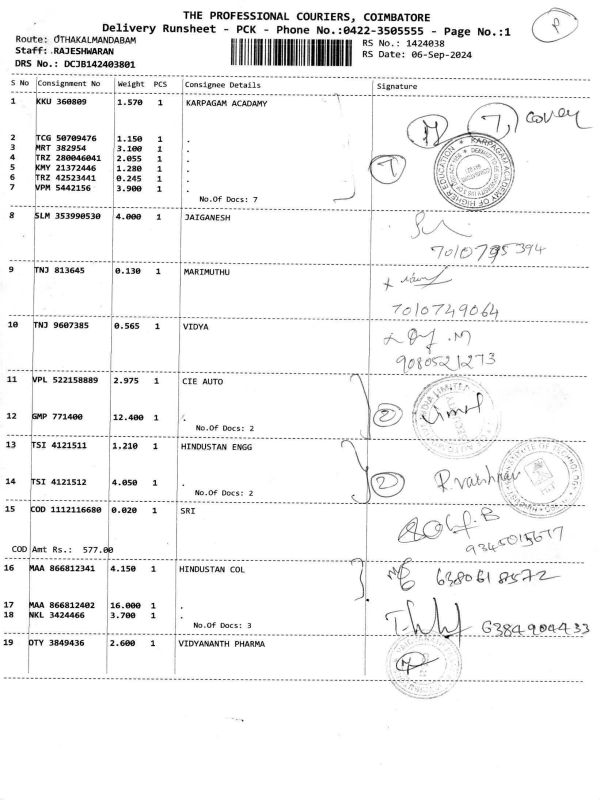 THE PROFESSIONAL COURIERS, COIMBATORE
Delivery Runsheet - PCK - Phone No.:0422-3505555 - Page No.:1
Route: OTHAKALMANDABAM
RS No.: 1424038
Staff: RAJESHWARAN
RS Date: 06-Sep-2024
DRS No.: DCJB142403801
S No Consignment No Weight PCS Consignee Details Signature
1 KKU 360809 1.570 1 KARPAGAM ACADAMY
7, cover
2 TCG 50709476 1.150 1 .
3 MRT 382954 3.100 1 .
4 TRZ 280046041 2.055 1 .
5 KMY 21372446 1.280 1 .
6 TRZ 42523441 0.245 1 .
7 VPM 5442156 3.900 1 .
No.Of Docs: 7
7
KARPAGAM ACADEMY OF HIGHER EDUCATION
8 SLM 353990530 4.000 1 JAIGANESH
7010795394
9 TNJ 813645 0.130 1 MARIMUTHU
7010749064
10 TNJ 9607385 0.565 1 VIDYA
9080521273
11 VPL 522158889 2.975 1 CIE AUTO
12 GMP 771400 12.400 1 .
No.Of Docs: 2
2
Vimal
13 TSI 4121511 1.210 1 HINDUSTAN ENGG
14 TSI 4121512 4.050 1 .
No.Of Docs: 2
2
15 COD 1112116680 0.020 1 SRI
9345015677
COD Amt Rs.: 577.00
16 MAA 866812341 4.150 1 HINDUSTAN COL
6380618572
17 MAA 866812402 16.000 1 .
18 NKL 3424466 3.700 1 .
No.Of Docs: 3
6384904433
19 OTY 3849436 2.600 1 VIDYANANTH PHARMA